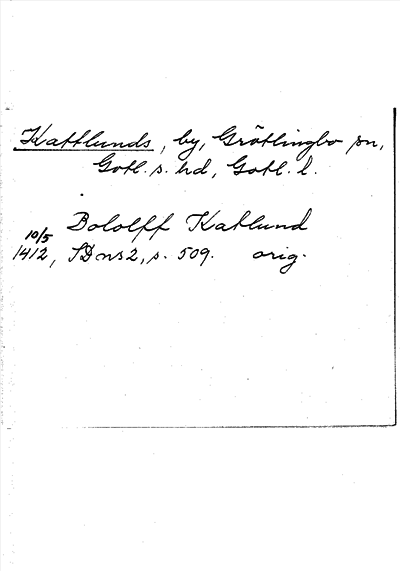 Kattlunds, by, Grötlingbo sn,
Gotl. s. hd, Gotl. l.
Bololff Katlund
10/5
1412, SDns2, s. 509. orig.